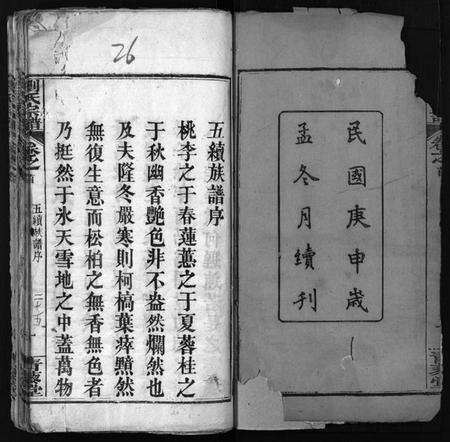 民國庚申歲
孟冬月續刊
1
26
五續族譜序
桃李之于春蓮蕙之于夏蓉桂之
于秋幽香艷色非不盎然爛然也
及夫隆冬嚴寒則柯槁葉瘁黯然
無復生意而松柏之無香無色者
乃挺然于氷天雪地之中蓋萬物
氏宗譜
卷之首
五續族譜序